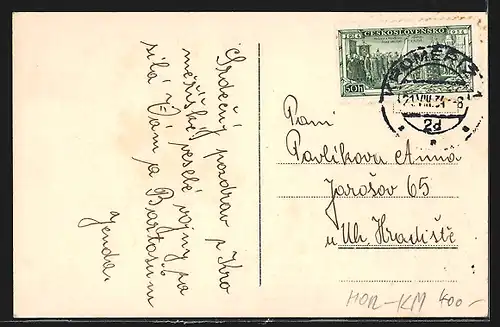 Srdečný pozdrav z Kro
měřížské veselé vojny za
sílá Vám p. Bartošům
Jenda.
1914
ČESKOSLOVENSKO
1934
50h
KROMĚŘÍŽ 1
21.VIII.34-8
2d
Paní
Pavlíkova Anna
Jarošov 65
u Uh. Hradiště
HOR-KM 400-